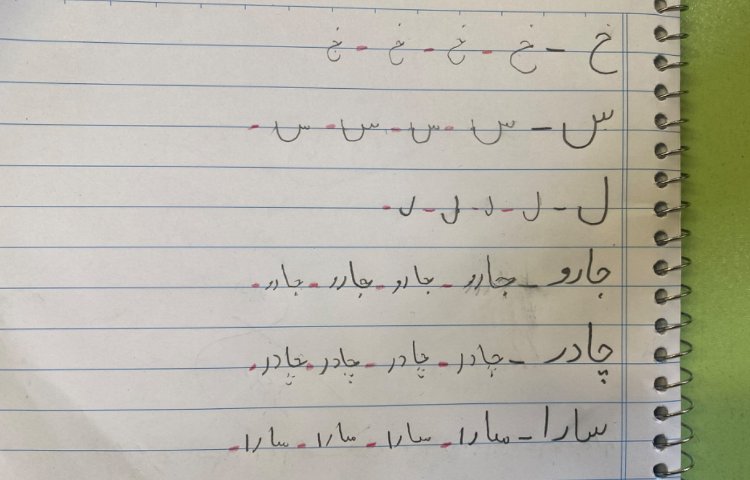 خ - خ - خ - خ - خ
س - س - س - س - س -
ل - ل - ل - ل - ل -
جارو - جارو - جارو - جارو - جارو -
چادر - چادر - چادر - چادر - چادر -
سارا - سارا - سارا - سارا - سارا -